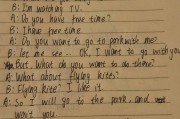 B: I'm watching TV.
A: Do you have free time?
B: I have free time
A: Do you want to go to park with me?
B: let me see - OK, I want to go with you
but. What do you want to do there?
A: What about flying kite?
B: Flying kite? I like it
A: So I will go to the park and
wait you